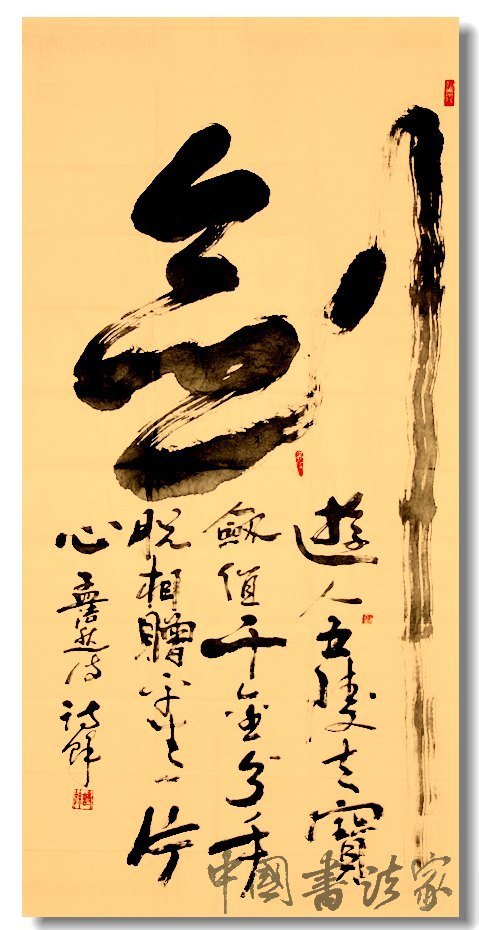 剑
遊人五陵去寶
劍值千金分手
脱相贈平生一片
心 孟浩然诗
中國書法家